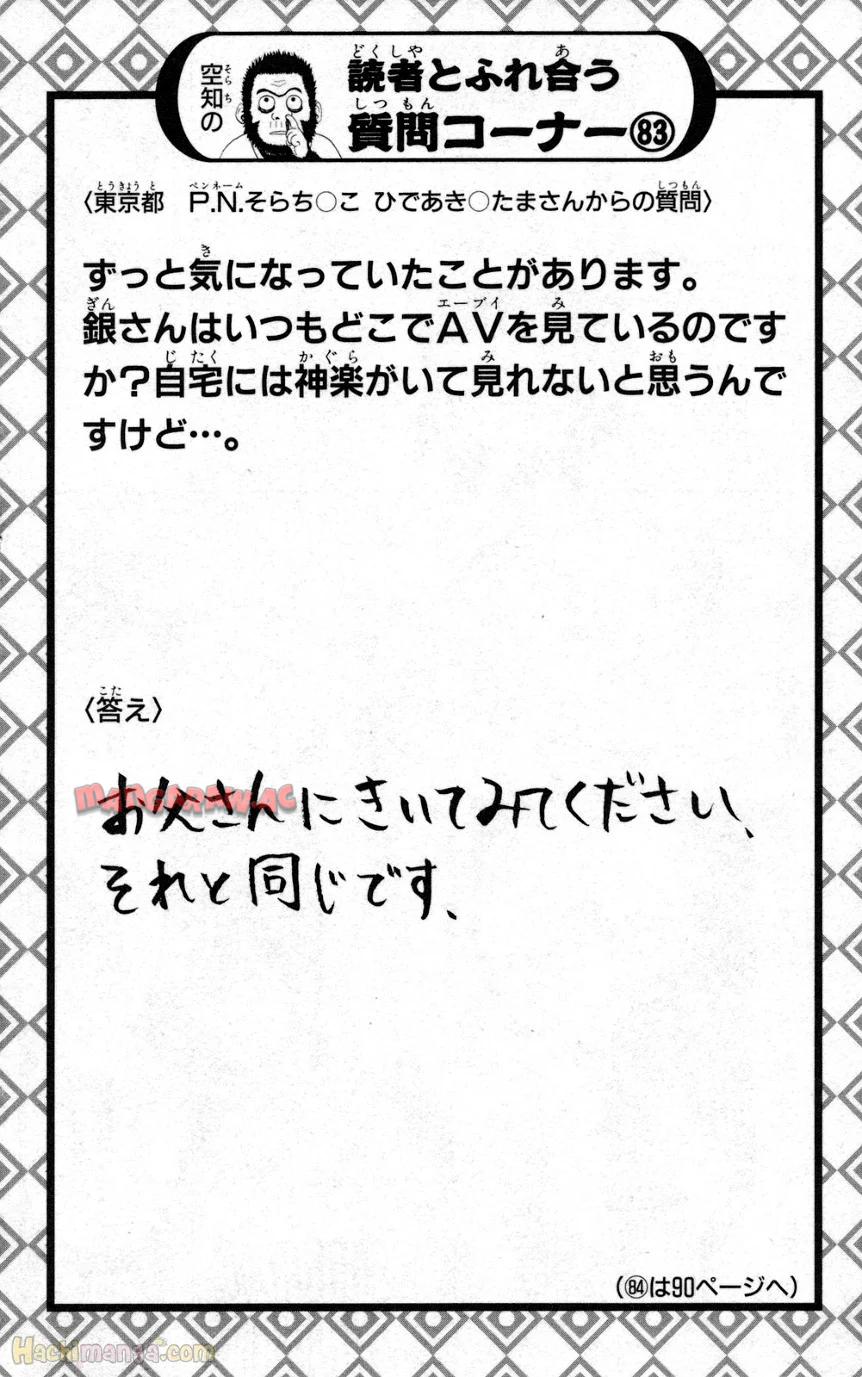 空知の
読者とふれ合う
質問コーナー83
〈東京都 P.N.そらち○こ ひであき○たまさんからの質問〉
ずっと気になっていたことがあります。
銀さんはいつもどこでAVを見ているのです
か?自宅には神楽がいて見れないと思うんで
すけど…。
〈答え〉
お父さんにきいてみてください、
それと同じです、
(84は90ページへ)
mangarawac
Hachimanga.com